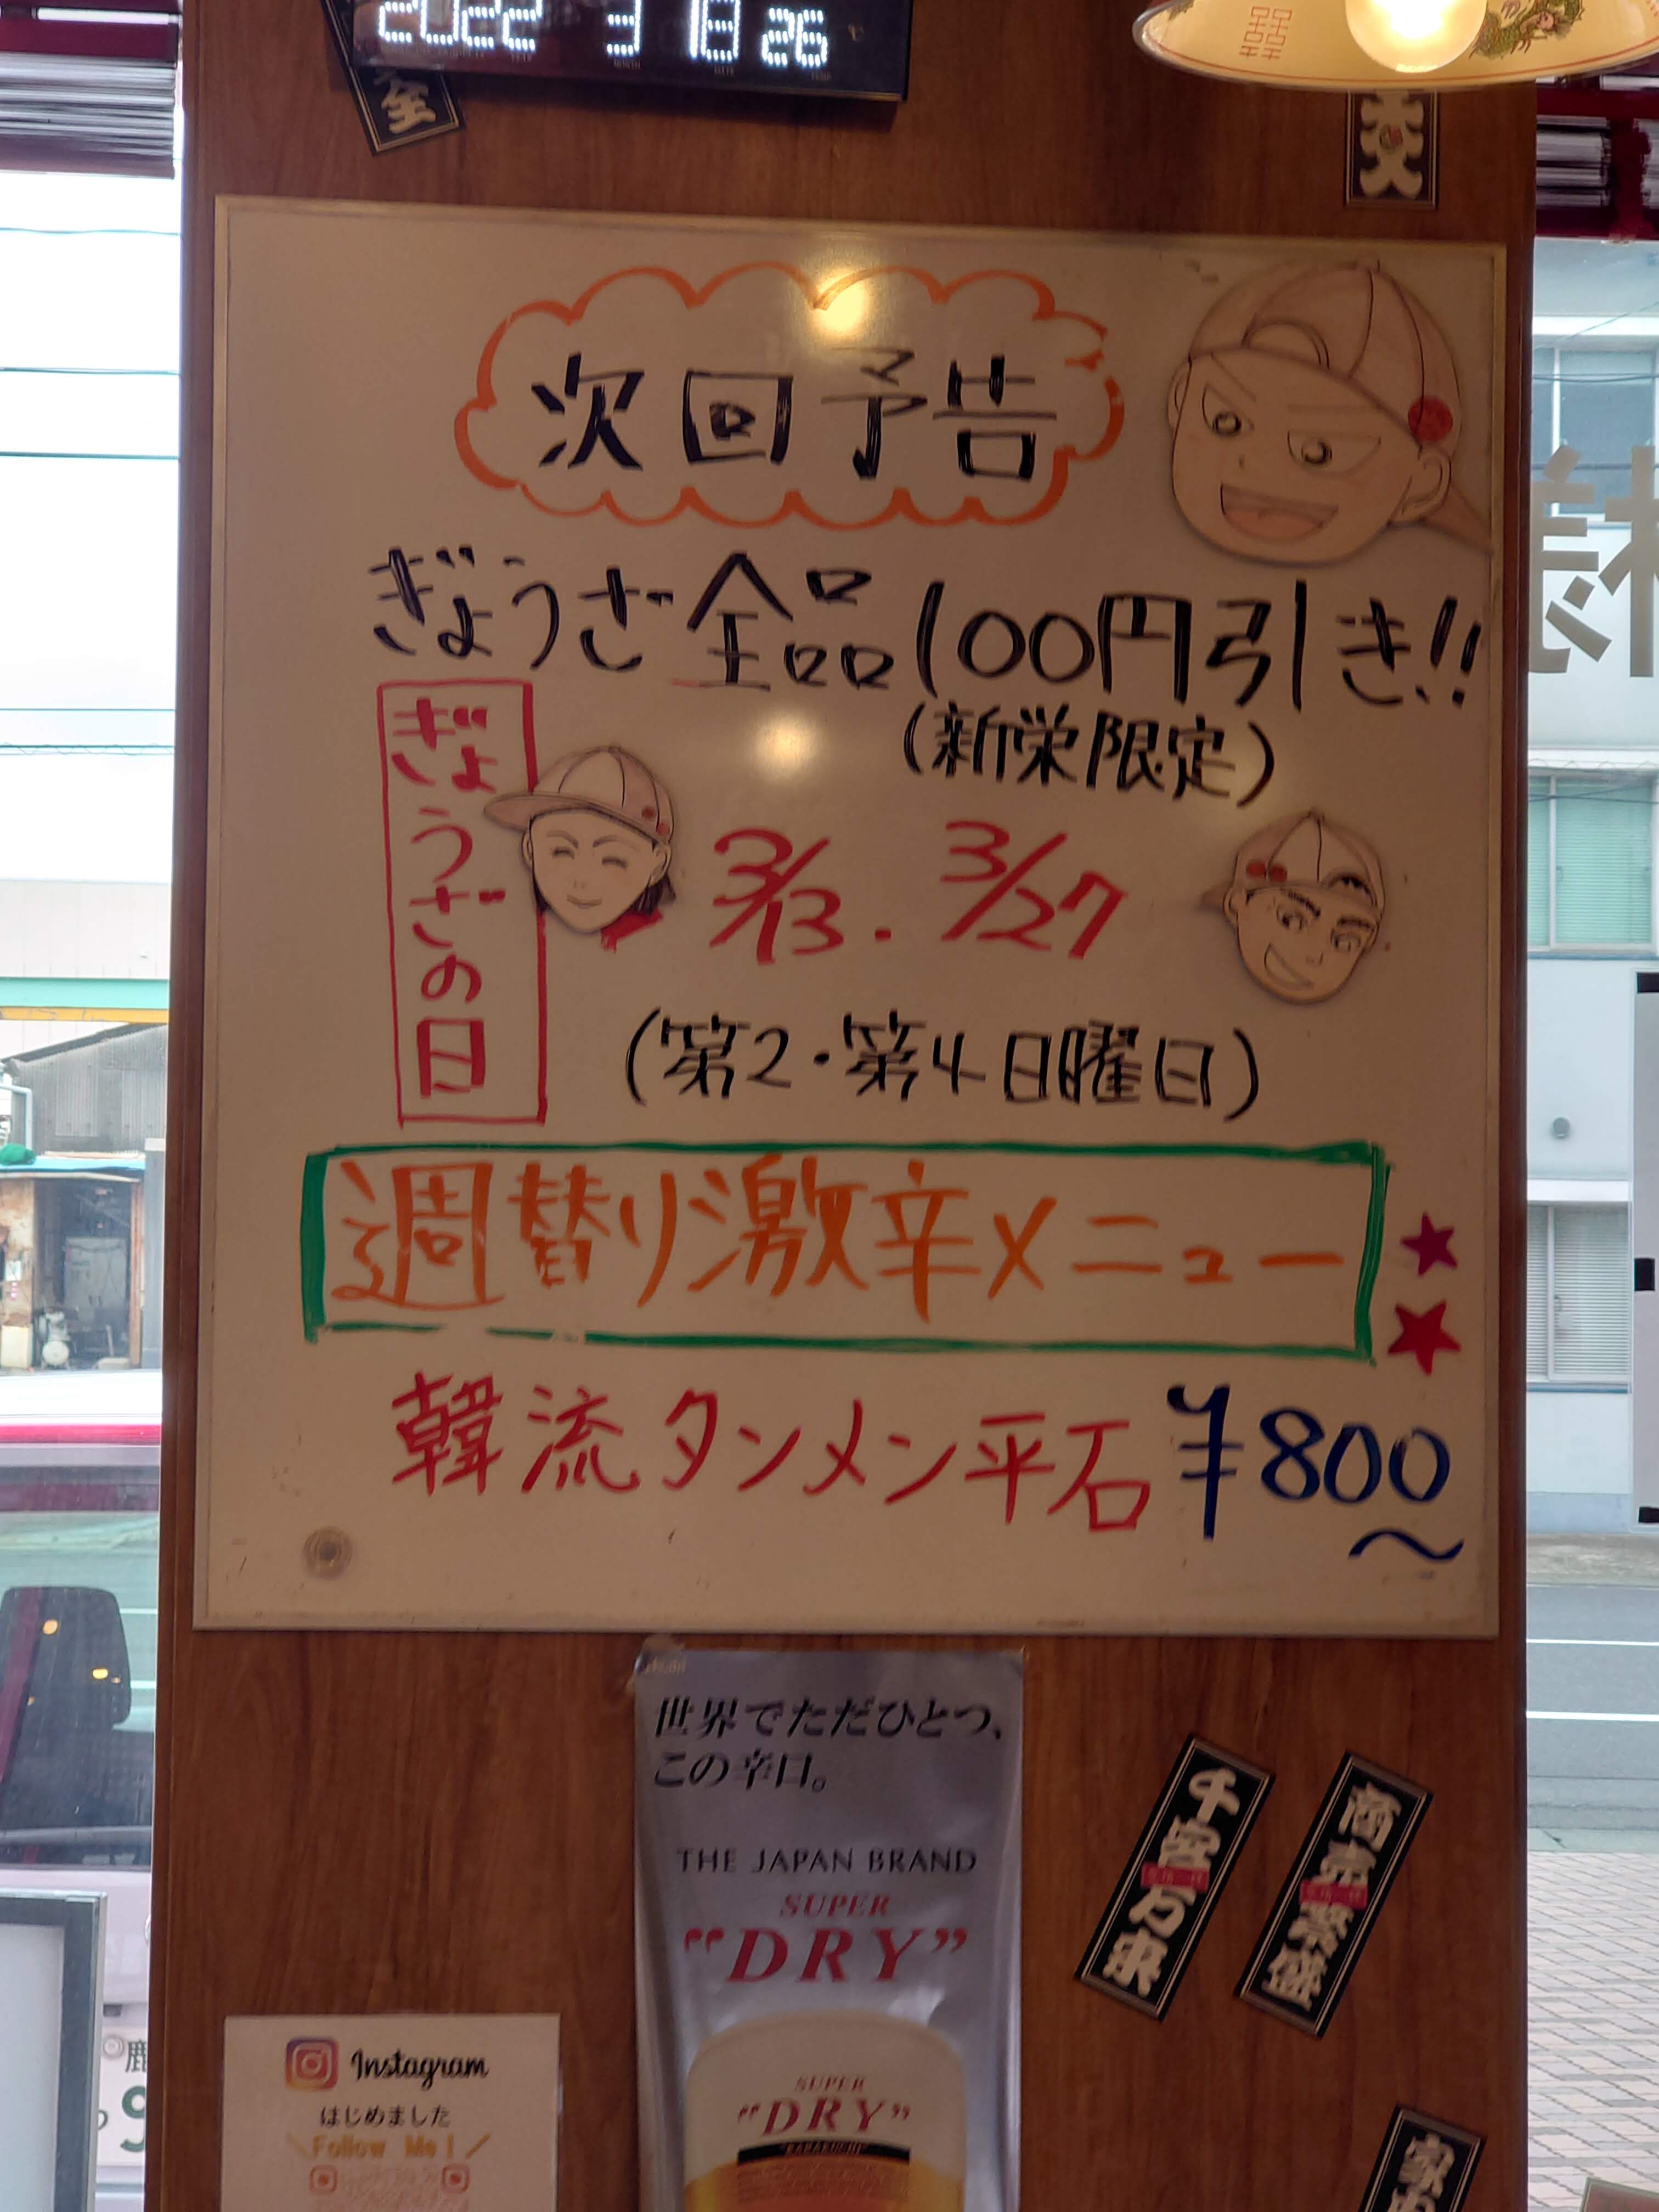 2022 3 13 26
次回予告
ぎょうざ全品100円引き!!
(新栄限定)
ぎょうざの日
3/13・3/27
(第2・第4日曜日)
週替り激辛メニュー
韓流タンメン平石 ¥800～
世界でただひとつ、
この辛口。
THE JAPAN BRAND
SUPER
"DRY"
SUPER
"DRY"
"KARAKUCHI"
千客万来
商売繁盛
Instagram
はじめました
Follow Me!